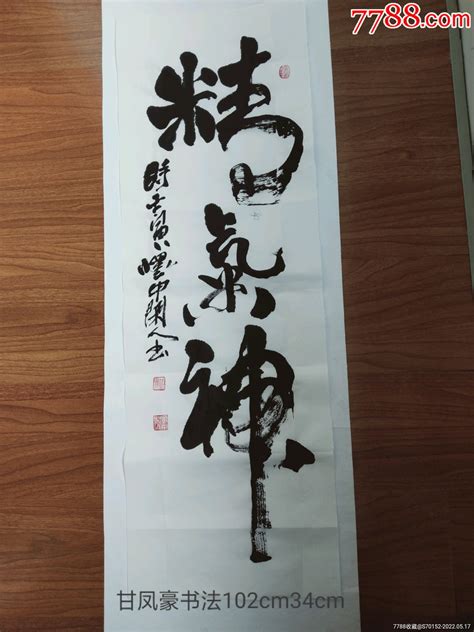 7788.com
精氣神
時壬寅
甘凤豪书法102cm34cm
7788收藏@S70152-2022.05.17